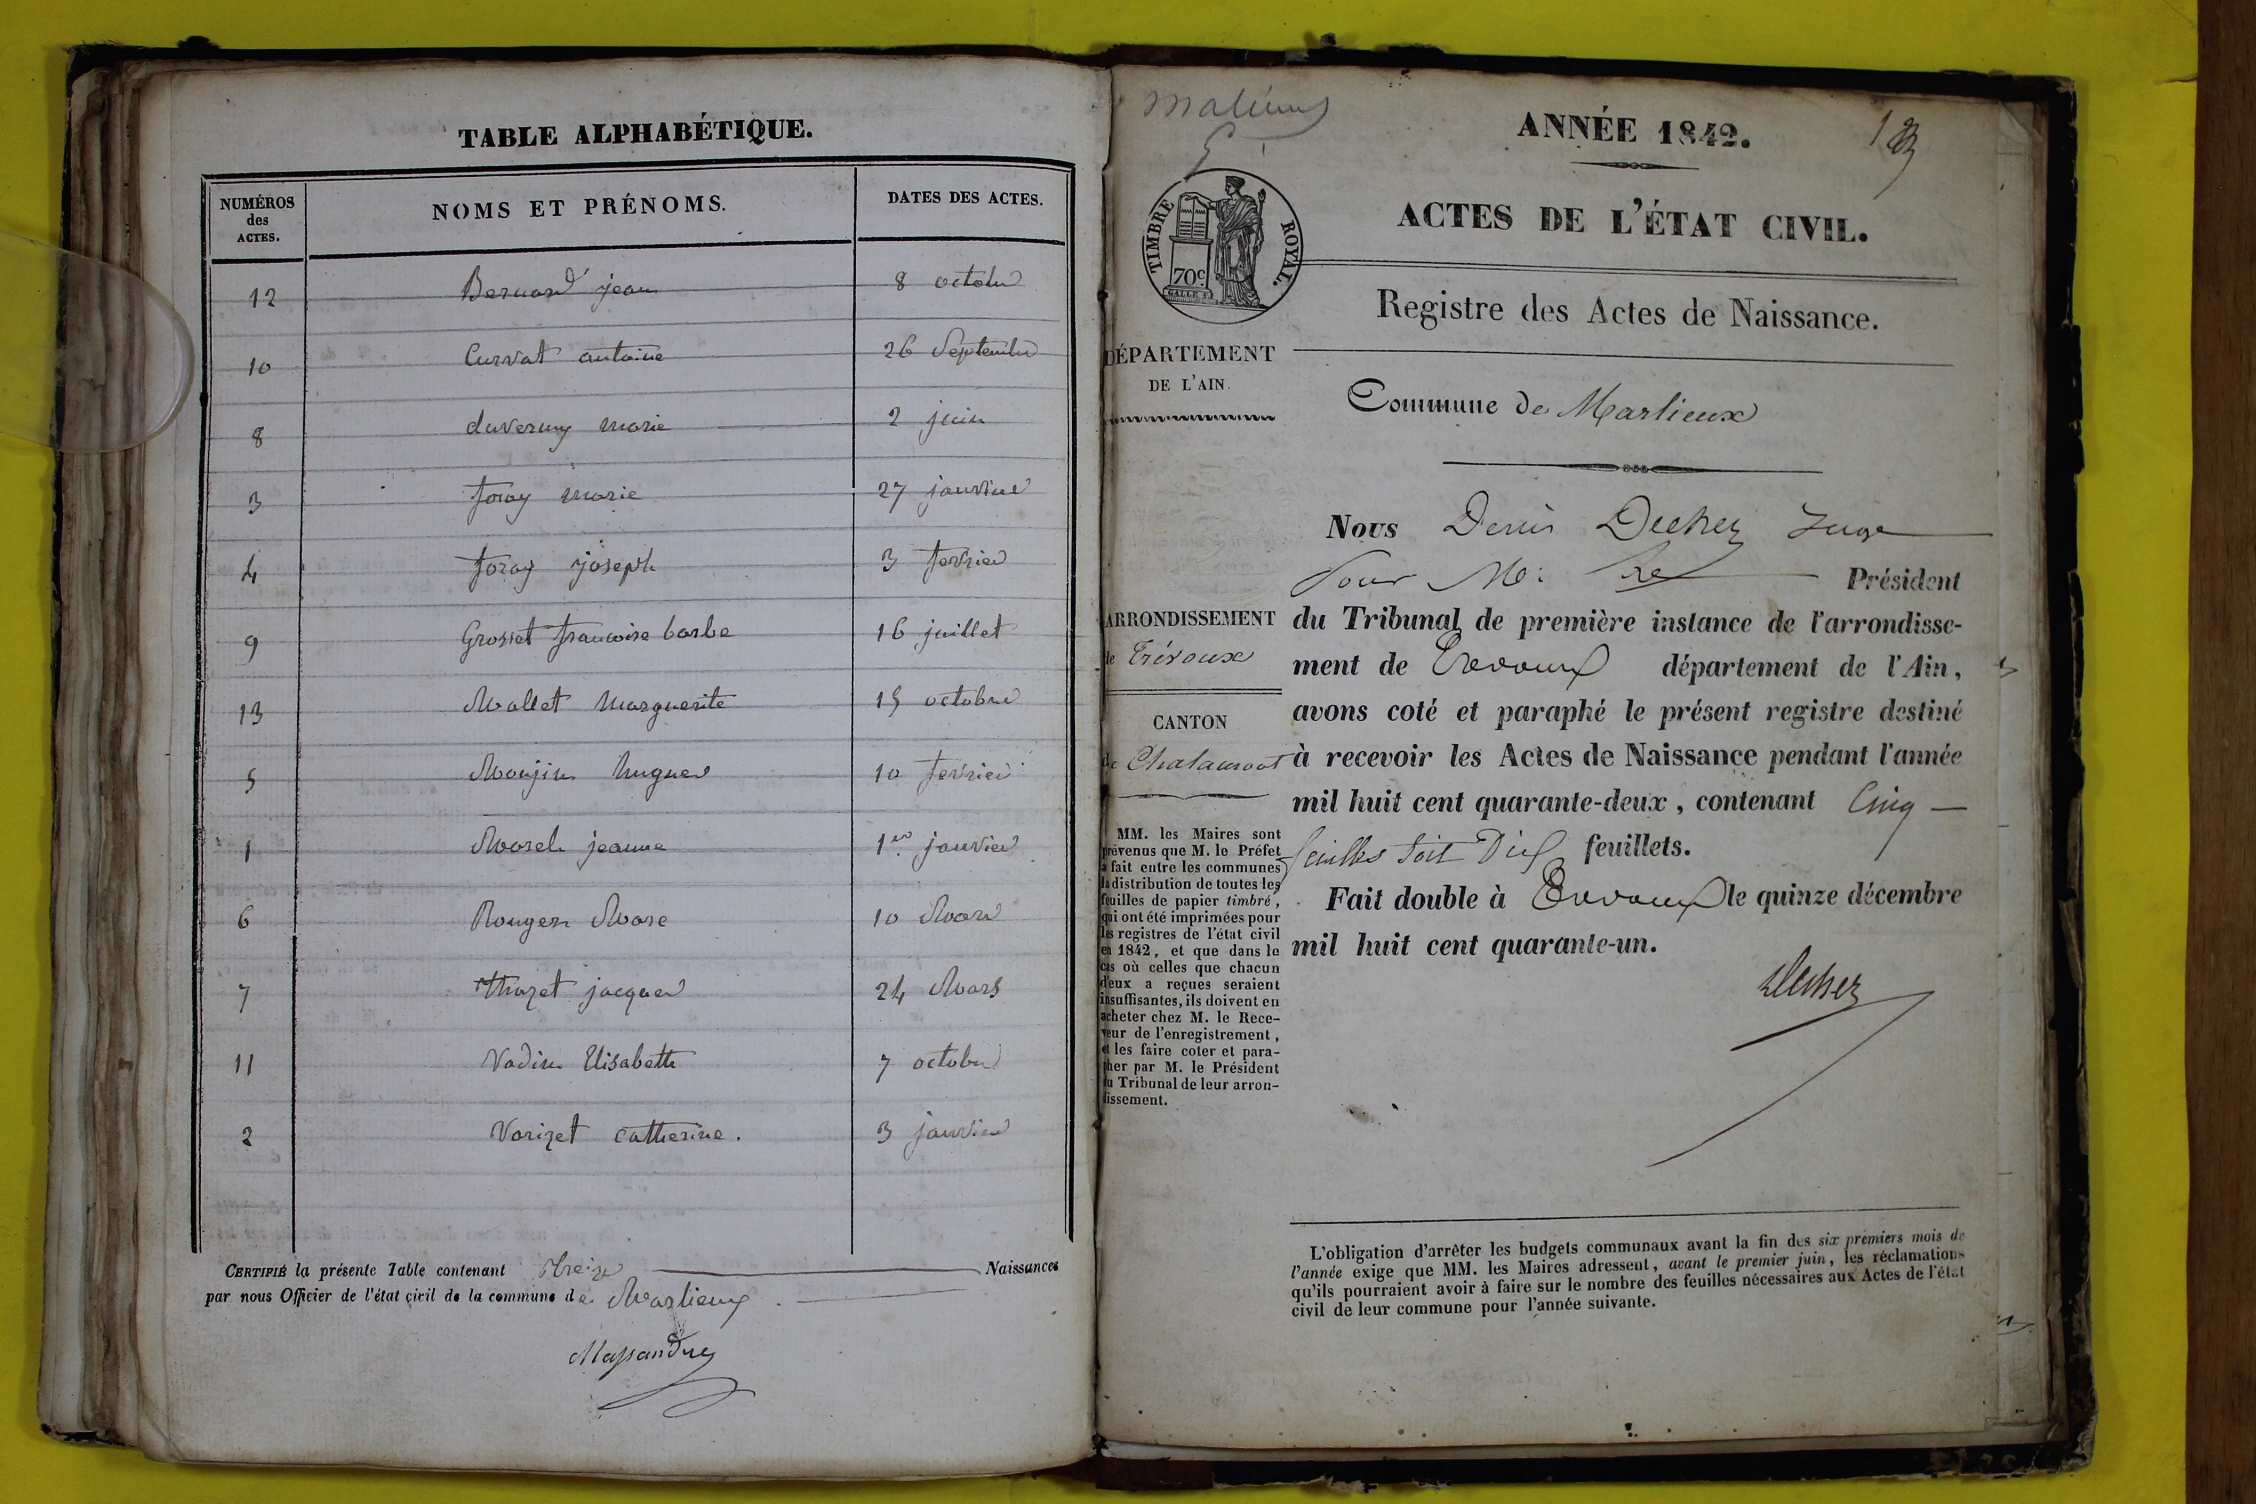 TABLE ALPHABÉTIQUE.
NUMÉROS des ACTES. NOMS ET PRÉNOMS. DATES DES ACTES.
12 Bernard jean 8 octobre
10 Curvat antoine 26 Septembre
8 duverney marie 2 juin
3 foray marie 27 janvier
4 foray joseph 3 fevrier
9 Grosset francoise barbe 16 juillet
13 Mallet marguerite 15 octobre
5 Monjin hugues 10 fevrier
1 Morel jeanne 1er janvier
6 Rouger Marc 10 Mars
7 thozet jacques 24 Mars
11 Vadin Elisabeth 7 octobre
2 Varizet Catherine. 3 janvier
CERTIFIÉ la présente Table contenant treize Naissances
par nous Officier de l'état civil de la commune de Marlieux.
ANNÉE 1842.
ACTES DE L'ÉTAT CIVIL.
TIMBRE ROYAL.
70c
Registre des Actes de Naissance.
DÉPARTEMENT
DE L'AIN.
Commune de Marlieux
Nous Denis Juge
Pour Mr Président
ARRONDISSEMENT
de Trévoux
du Tribunal de première instance de l'arrondisse-
ment de Trevoux département de l'Ain,
avons coté et paraphé le présent registre destiné
à recevoir les Actes de Naissance pendant l'année
mil huit cent quarante-deux, contenant Cinq
feuilles soit Dix feuillets.
Fait double à Trevoux le quinze décembre
mil huit cent quarante-un.
CANTON
de Chalamont
MM. les Maires sont
prévenus que M. le Préfet
a fait entre les communes
la distribution de toutes les
feuilles de papier timbré,
qui ont été imprimées pour
les registres de l'état civil
en 1842, et que dans le
cas où celles que chacun
d'eux a reçues seraient
insuffisantes, ils doivent en
acheter chez M. le Rece-
veur de l'enregistrement,
et les faire coter et para-
pher par M. le Président
du Tribunal de leur arron-
dissement.
L'obligation d'arrêter les budgets communaux avant la fin des six premiers mois de
l'année exige que MM. les Maires adressent, avant le premier juin, les réclamations
qu'ils pourraient avoir à faire sur le nombre des feuilles nécessaires aux Actes de l'état
civil de leur commune pour l'année suivante.